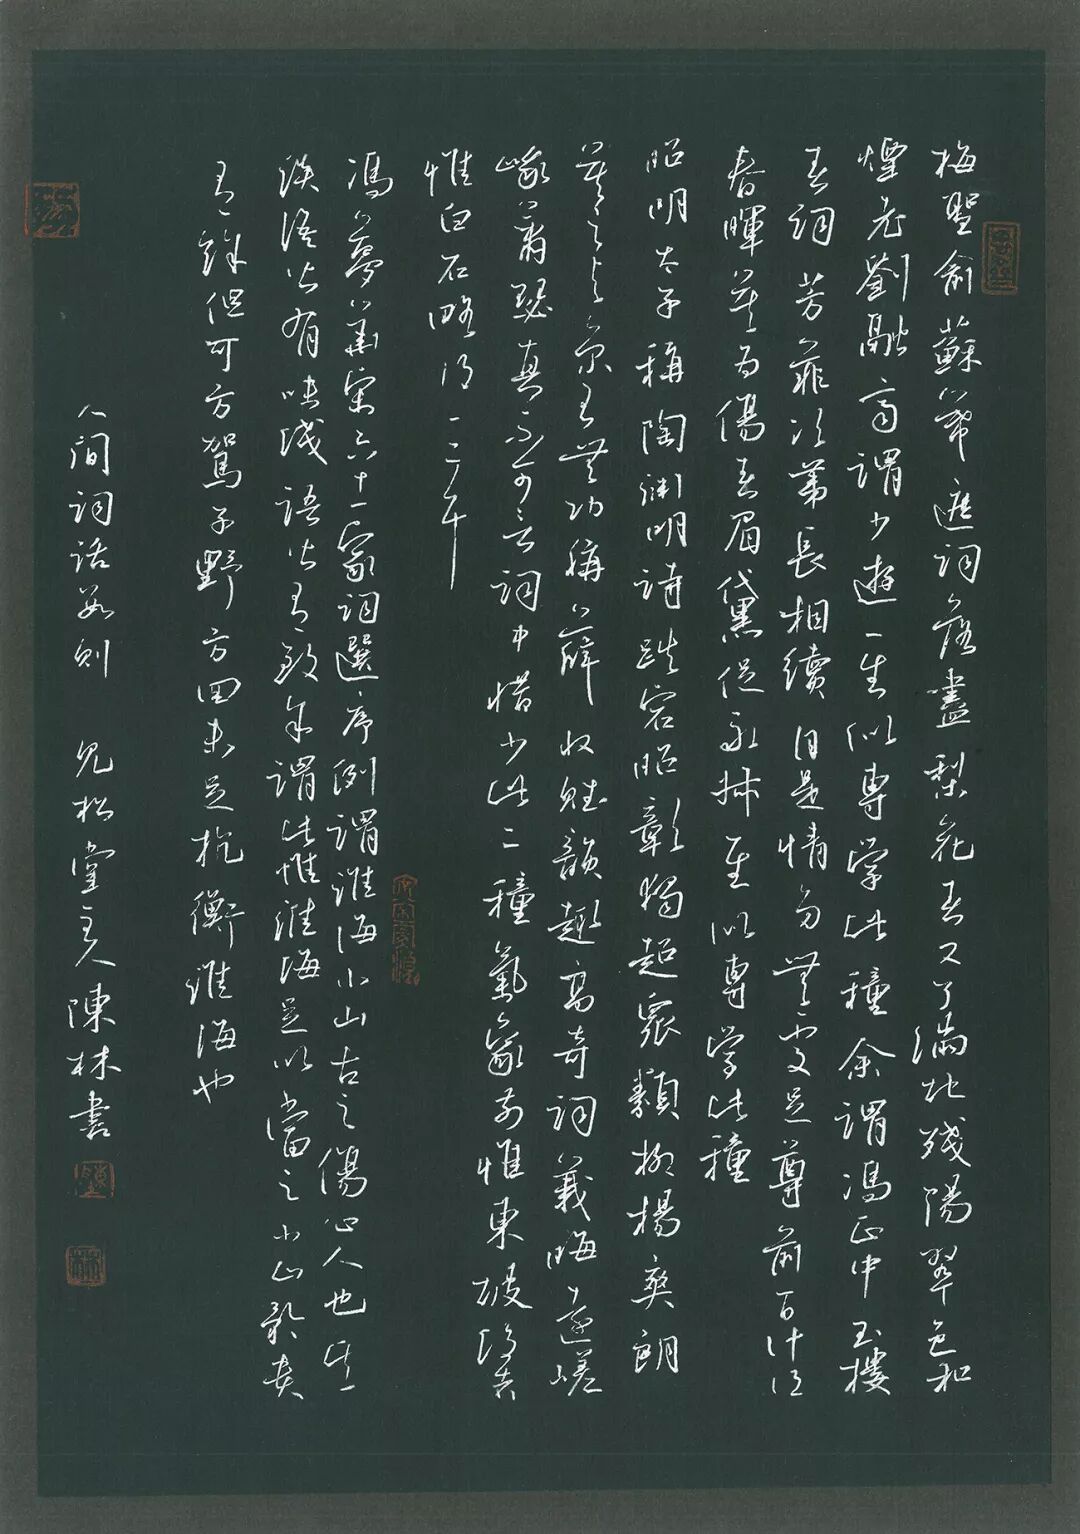 梅聖俞蘇幕遮詞落盡梨花春又了滿地殘陽翠色和
煙老劉融齋謂少遊一生似專學此種余謂馮正中玉樓
春詞芳菲次第長相續自是情多無處足尊前百計得
春暉莫為傷春眉黛促永叔一生似專學此種
昭明太子稱陶淵明詩跌宕昭彰獨超衆類抑揚爽朗
莫之與京王無功稱薛收賦韻趣高奇詞義晦遠嵯
峨蕭瑟真不可言詞中惜少此二種氣象前惟東坡後者
惟白石略得一二耳
馮夢華宋六十一家詞選序例謂淮海小山古之傷心人也其
淡語皆有味淺語皆有致余謂此惟淮海足以當之小山矜貴
有餘但可方駕子野方回未足抗衡淮海也
人間詞話數則 見松堂主人陳林書